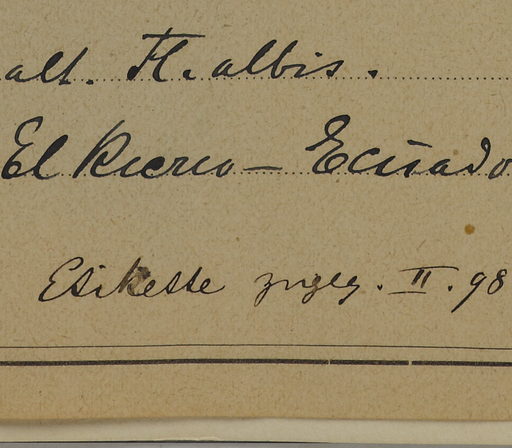 alt. Fl. albis.
El Recreo - Ecuado
Etikette zugeg. II. 98